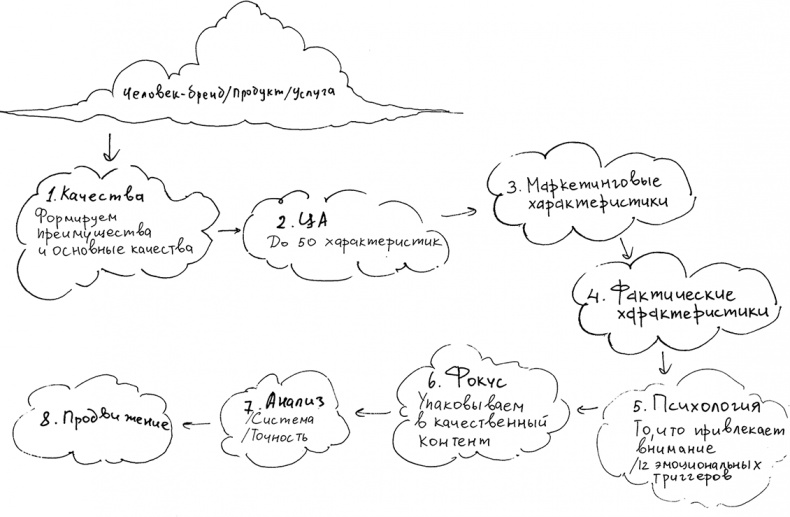 Человек-бренд/Продукт/Услуга
1. Качества
Формируем
преимущества
и основные качества
2. ЦА
До 50 характеристик
3. Маркетинговые
характеристики
4. Фактические
характеристики
5. Психология
То, что привлекает
внимание
/12 эмоциональных
триггеров
6. Фокус
Упаковываем
в качественный
контент
7. Анализ
/Система
/Точность
8. Продвижение